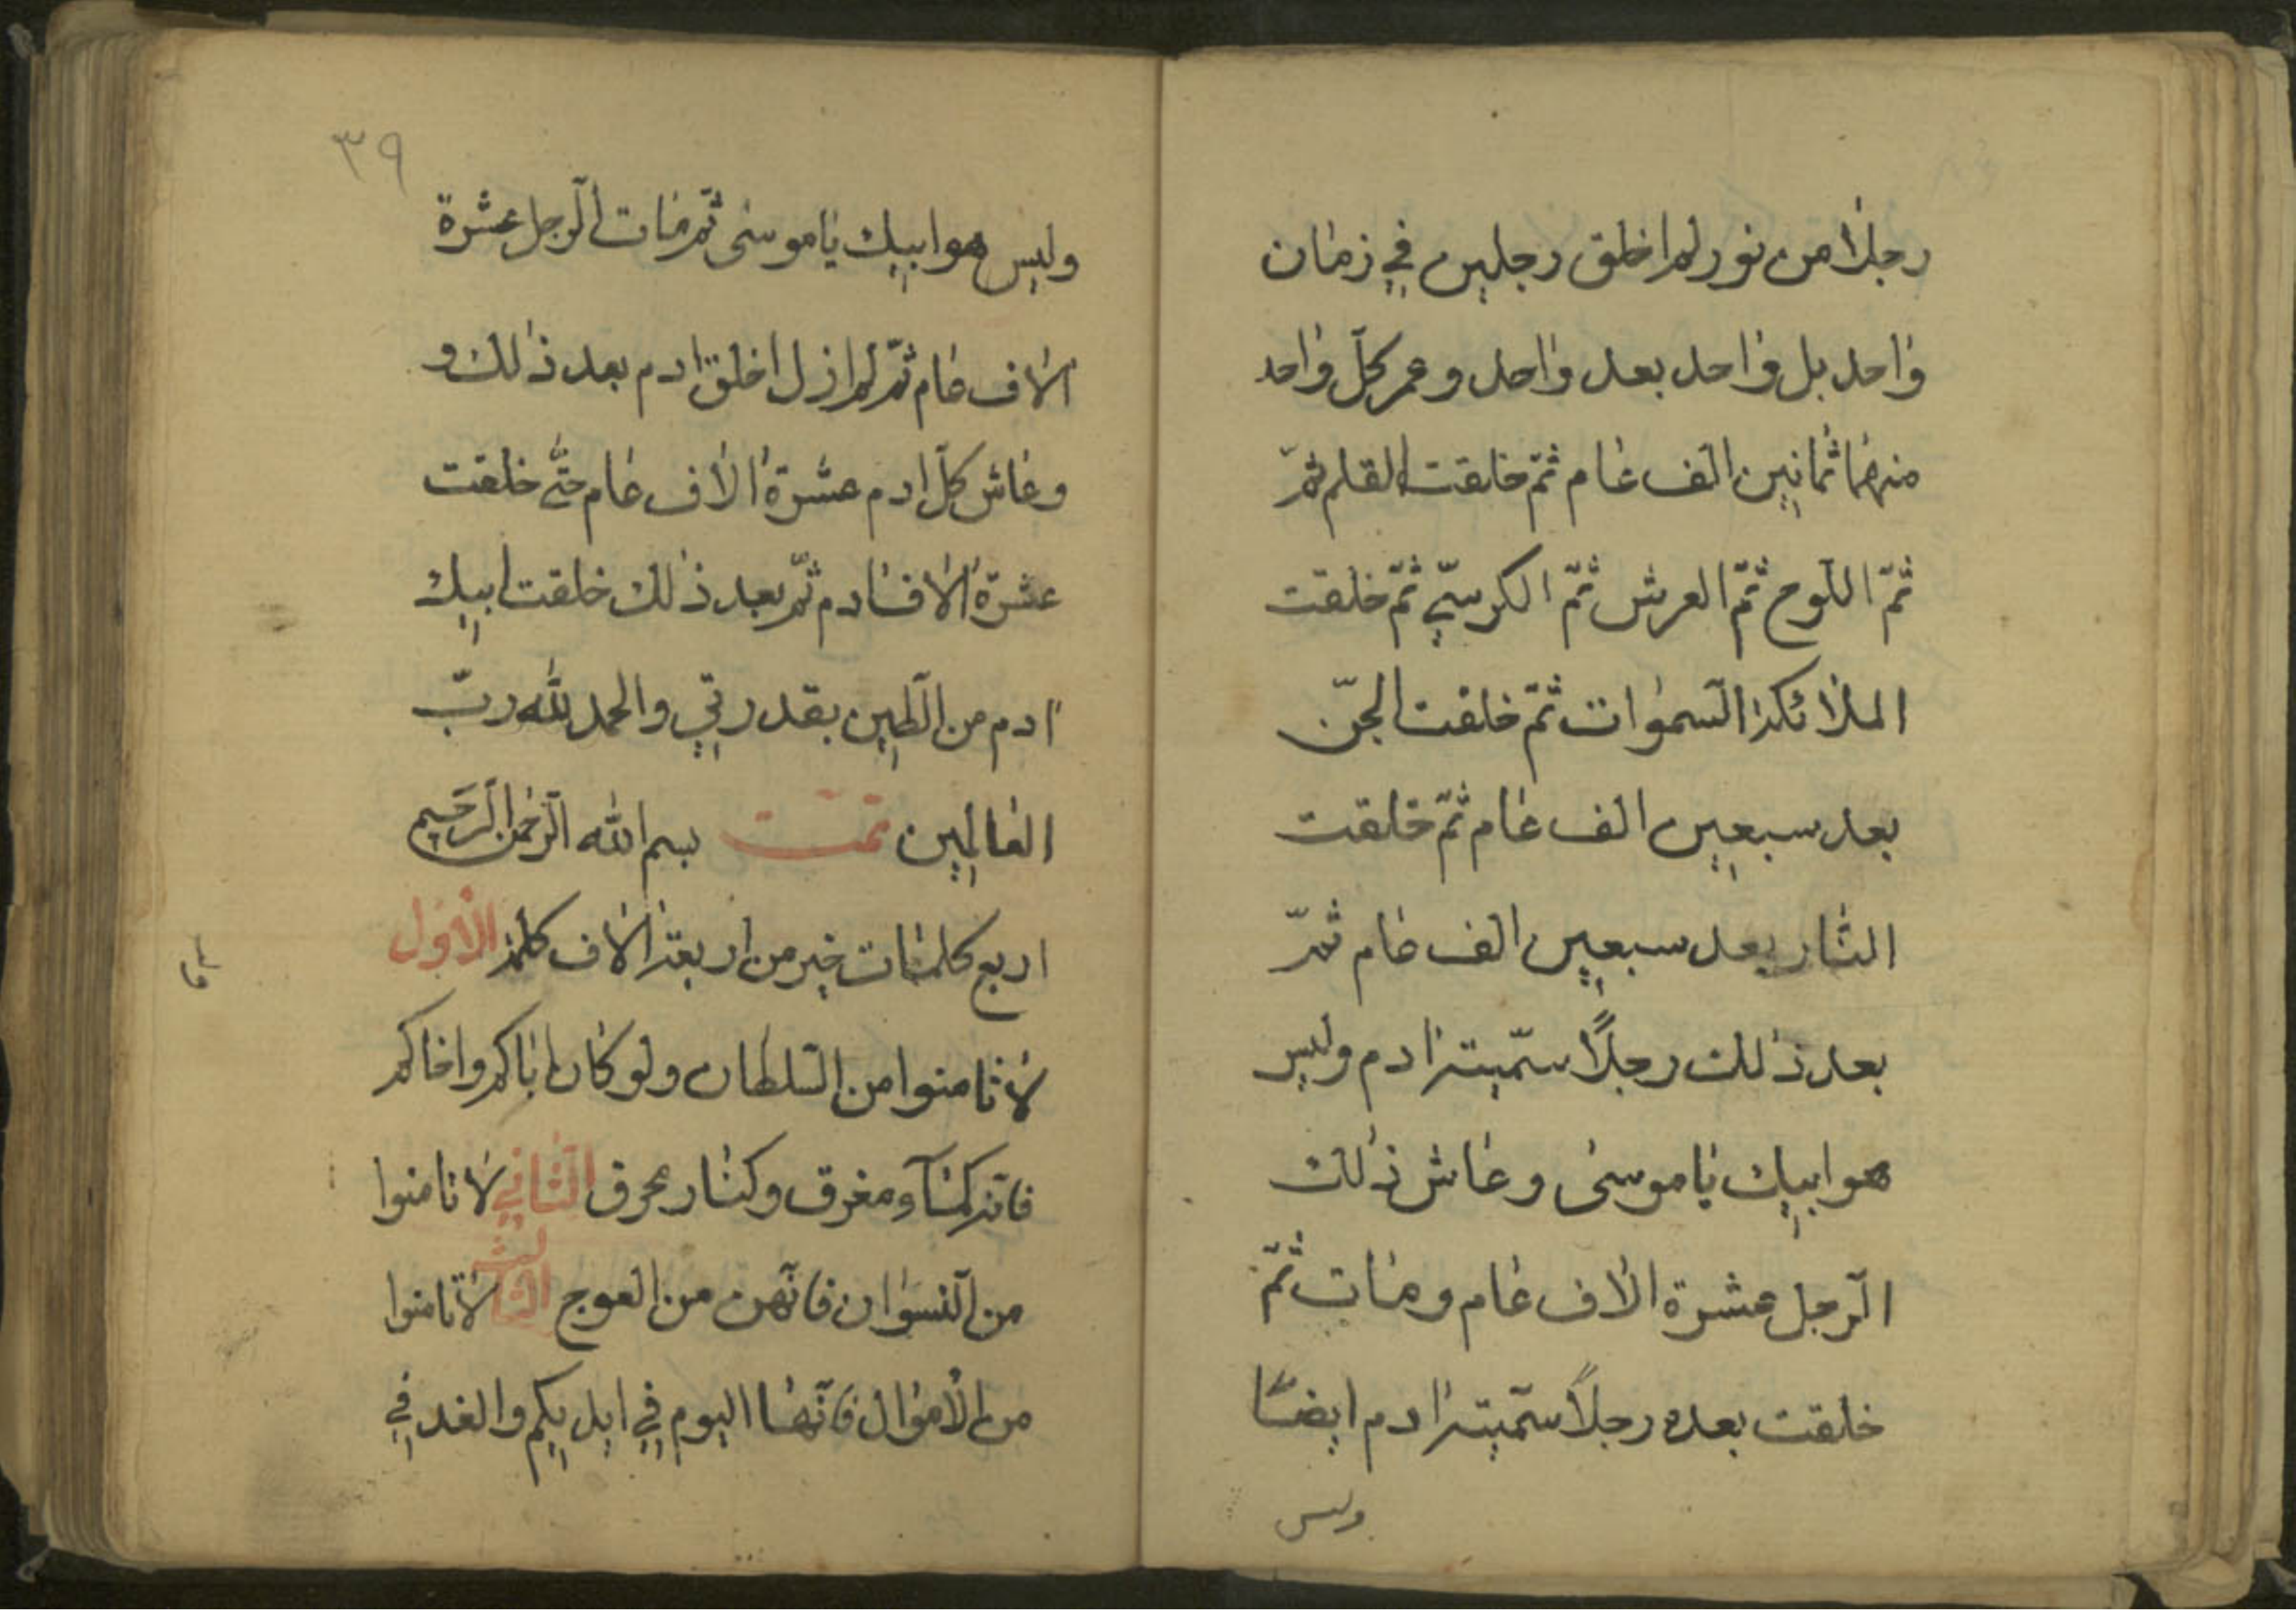 رجلا من نور لم اخلق رجلين في زمان
واحد بل واحد بعد واحد وعمر كلّ واحد
منهما ثمانين الف عام ثمّ خلقت القلم ثمّ
ثمّ اللّوح ثمّ العرش ثمّ الكرسيّ ثمّ خلقت
الملائكة السّموات ثمّ خلقت الجنّ
بعد سبعين الف عام ثمّ خلقت
النار بعد سبعين الف عام ثمّ
بعد ذلك رجلاً سمّيته ادم وليس
هو ابيك يا موسى وعاش ذلك
الرّجل عشرة الاف عام ومات ثمّ
خلقت بعده رجلاً سمّيته ادم ايضًا
وليس
٣٩
وليس هو ابيك يا موسى ثمّ مات الرّجل عشرة
الاف عام ثمّ لم ازل اخلق ادم بعد ذلك و
وعاش كلّ ادم عشرة الاف عام حتّى خلقت
عشرة الاف ادم ثمّ بعد ذلك خلقت ابيك
ادم من الطّين بقدرتي والحمد لله ربّ
العالمين تمّت بسم الله الرّحمن الرّحيم
اربع كلمات خير من اربعة الاف كلمة الاوّل
لا تامنوا من السّلطان ولو كان اباكم واخاكم
فانّه كمآء مغرق وكنار محرق الثّاني لا تامنوا
من النّسوان فانّهن من العوج الثالث لا تامنوا
من الاموال فانّها اليوم في ايديكم والغد في